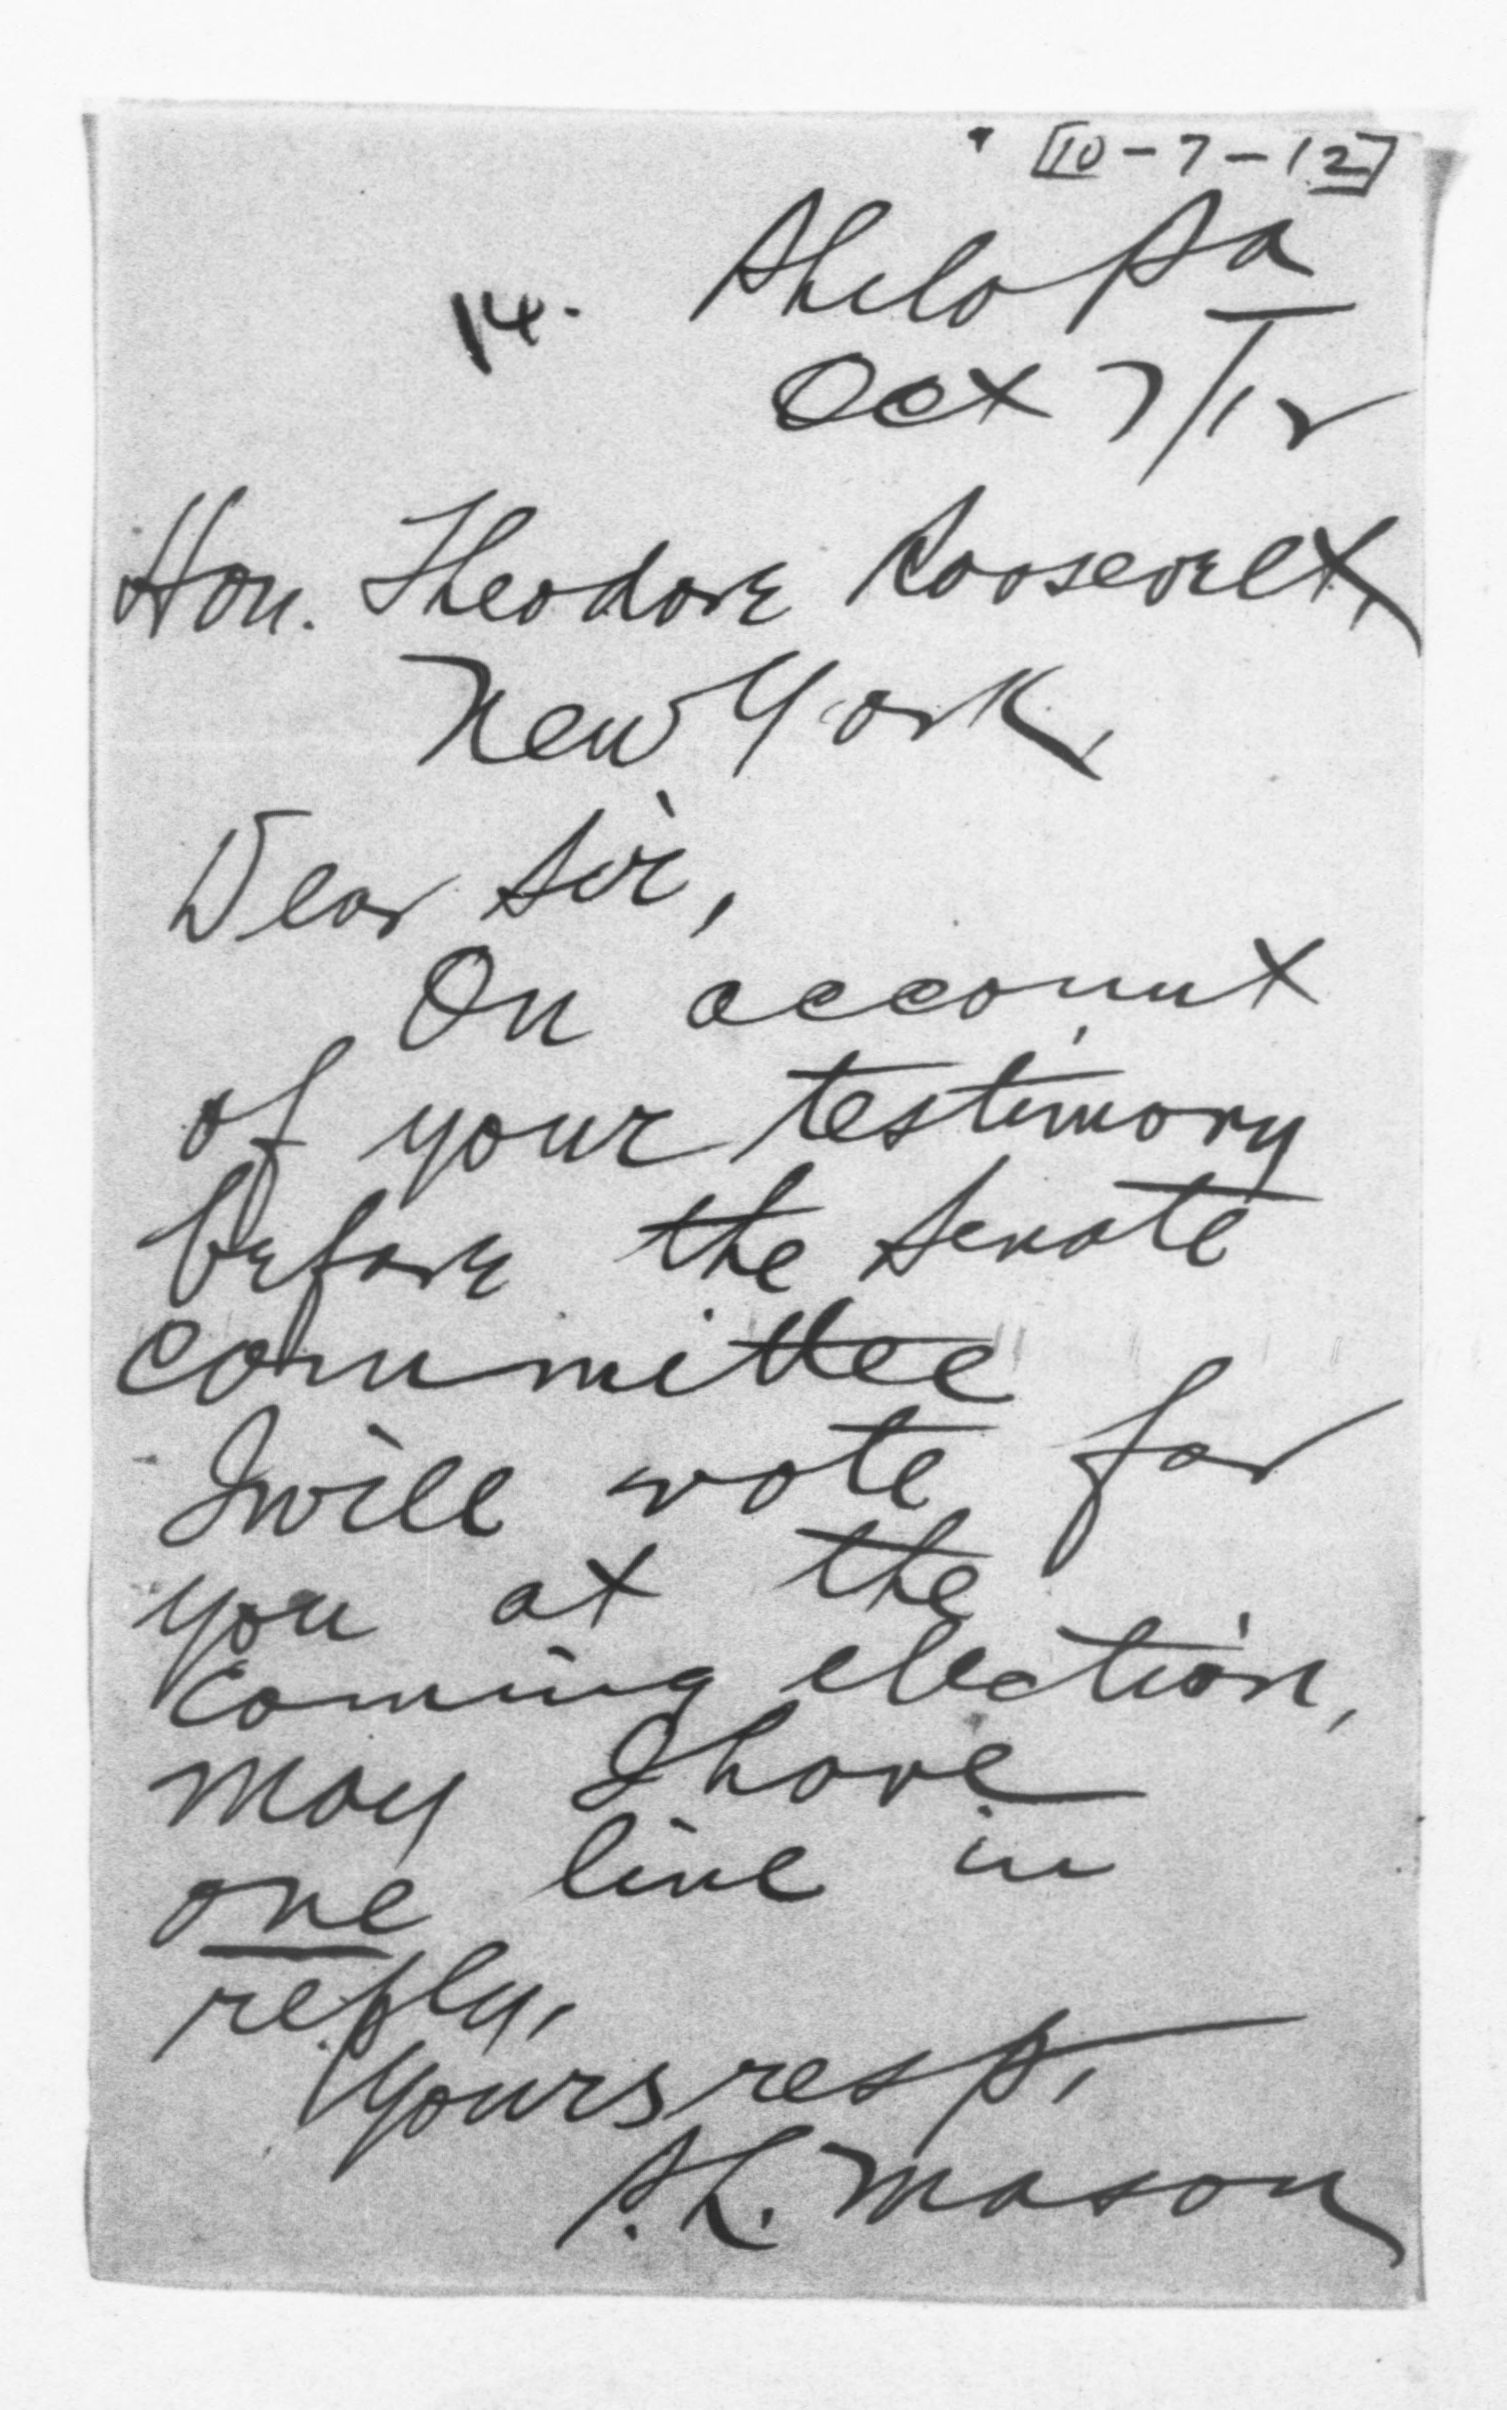 [10-7-12]
Phila Pa
14.
Oct 7/12
Hon. Theodore Roosevelt,
New York,
Dear Sir,
On account
of your testimony
before the Senate
Committee
I will vote for
you at the
coming election,
may I have
one line in
reply,
Yours resp.
Mason